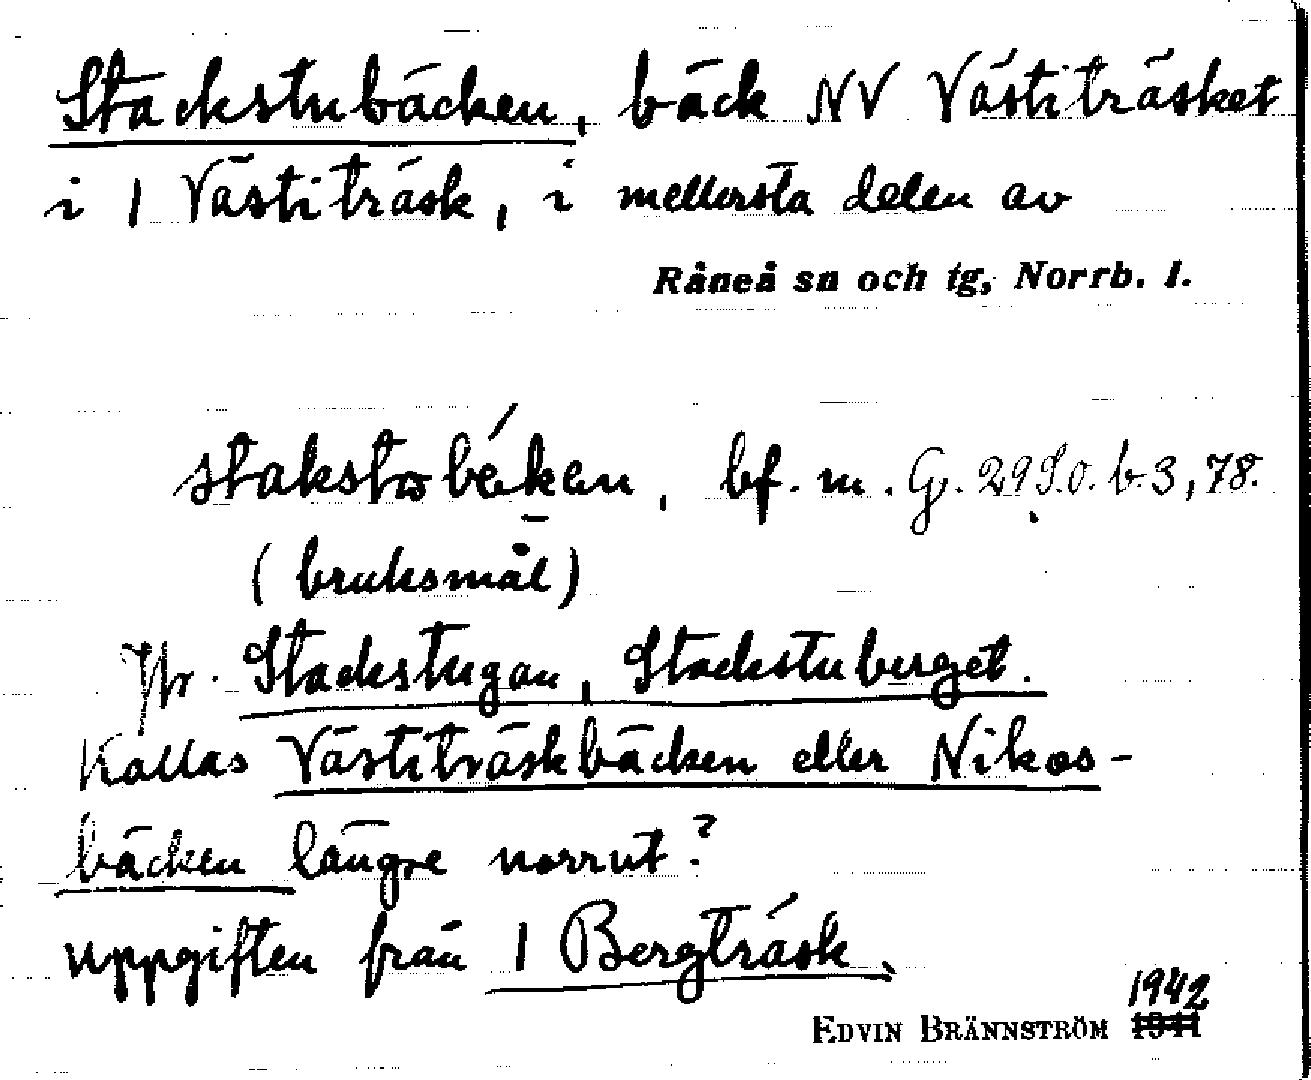 Stackstubäcken, bäck NV Västiträsket
i 1 Västiträsk, i mellersta delen av
Råneå sn och tg, Norrb. l.
bf. m.
(bruksmål)
Jfr. Stackstugan, Stackstuberget.
Kallas Västiträskbäcken eller Nikos-
bäcken längre norrut?
uppgiften från 1 Bergträsk.
1942
EDVIN BRÄNNSTRÖM 1941